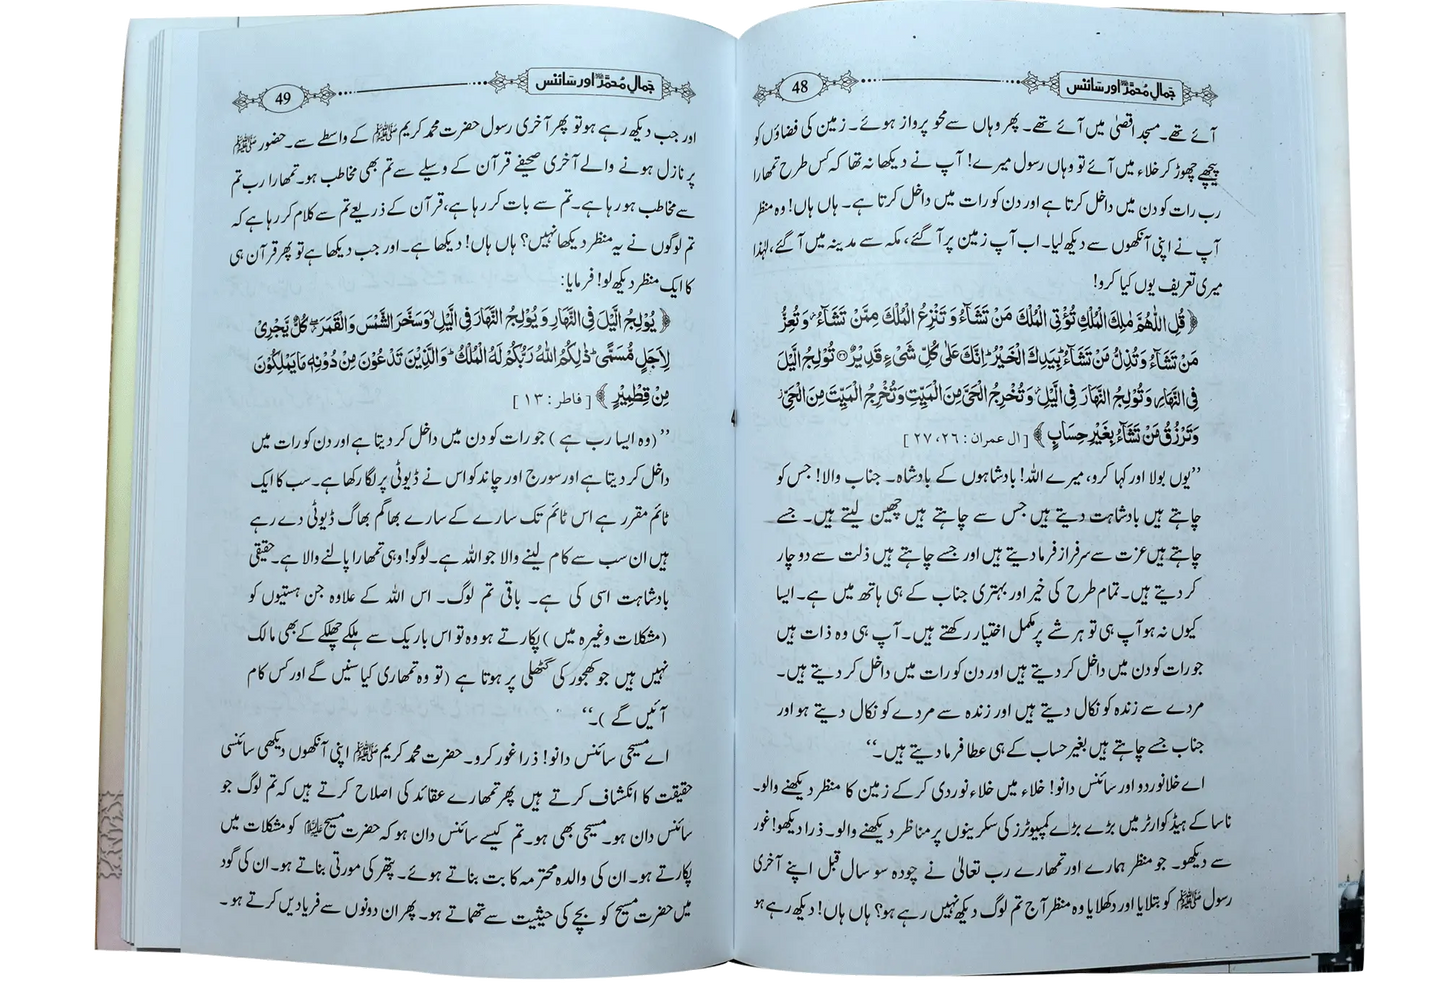 جمالِ محمدﷺ اور سائنس
48
آئے تھے۔ مسجد اقصیٰ میں آئے تھے۔ پھر وہاں سے محو پرواز ہوئے۔ زمین کی فضاؤں کو
پیچھے چھوڑ کر خلاء میں آئے تو وہاں رسول میرے! آپ نے دیکھا نہ تھا کہ کس طرح تمھارا
رب رات کو دن میں داخل کرتا ہے اور دن کو رات میں داخل کرتا ہے۔ ہاں ہاں! وہ منظر
آپ نے اپنی آنکھوں سے دیکھ لیا۔ اب آپ زمین پر آ گئے، مکہ سے مدینہ میں آ گئے، لہٰذا
میری تعریف یوں کیا کرو!
﴿ قُلِ اللّٰهُمَّ مٰلِكَ الْمُلْكِ تُؤْتِي الْمُلْكَ مَنْ تَشَآءُ وَتَنْزِعُ الْمُلْكَ مِمَّنْ تَشَآءُ ۖ وَتُعِزُّ
مَنْ تَشَآءُ وَتُذِلُّ مَنْ تَشَآءُ ۖ بِيَدِكَ الْخَيْرُ ۖ اِنَّكَ عَلٰى كُلِّ شَيْءٍ قَدِيْرٌ ۝ تُوْلِجُ الَّيْلَ
فِي النَّهَارِ وَتُوْلِجُ النَّهَارَ فِي الَّيْلِ ۖ وَتُخْرِجُ الْحَيَّ مِنَ الْمَيِّتِ وَتُخْرِجُ الْمَيِّتَ مِنَ الْحَيِّ ۖ
وَتَرْزُقُ مَنْ تَشَآءُ بِغَيْرِ حِسَابٍ ﴾ [ ال عمران : ۲۶، ۲۷ ]
’’یوں بولا اور کہا کرو، میرے اللہ! بادشاہوں کے بادشاہ۔ جناب والا! جس کو
چاہتے ہیں بادشاہت دیتے ہیں جس سے چاہتے ہیں چھین لیتے ہیں۔ جسے
چاہتے ہیں عزت سے سرفراز فرما دیتے ہیں اور جسے چاہتے ہیں ذلت سے دو چار
کر دیتے ہیں۔ تمام طرح کی خیر اور بہتری جناب کے ہی ہاتھ میں ہے۔ ایسا
کیوں نہ ہو آپ ہی تو ہر شے پر مکمل اختیار رکھتے ہیں۔ آپ ہی وہ ذات ہیں
جو رات کو دن میں داخل کر دیتے ہیں اور دن کو رات میں داخل کر دیتے ہیں۔
مردے سے زندہ کو نکال دیتے ہیں اور زندہ سے مردے کو نکال دیتے ہو اور
جناب جسے چاہتے ہیں بغیر حساب کے ہی عطا فرما دیتے ہیں۔‘‘
اے خلا نوردو اور سائنس دانو! خلاء میں خلاء نوردی کر کے زمین کا منظر دیکھنے والو۔
ناسا کے ہیڈ کوارٹر میں بڑے بڑے کمپیوٹرز کی سکرینوں پر مناظر دیکھنے والو۔ ذرا دیکھو! غور
سے دیکھو۔ جو منظر ہمارے اور تمھارے رب تعالیٰ نے چودہ سو سال قبل اپنے آخری
رسول ﷺ کو بتلایا اور دکھلایا وہ منظر آج تم لوگ دیکھ نہیں رہے ہو؟ ہاں ہاں! دیکھ رہے ہو
جمالِ محمدﷺ اور سائنس
49
اور جب دیکھ رہے ہو تو پھر آخری رسول حضرت محمد کریم ﷺ کے واسطے سے۔ حضور ﷺ
پر نازل ہونے والے آخری صحیفے قرآن کے وسیلے سے تم بھی مخاطب ہو۔ تمھارا رب تم
سے مخاطب ہو رہا ہے۔ تم سے بات کر رہا ہے، قرآن کے ذریعے تم سے کلام کر رہا ہے کہ
تم لوگوں نے یہ منظر دیکھا نہیں؟ ہاں ہاں! دیکھا ہے۔ اور جب دیکھا ہے تو پھر قرآن ہی
کا ایک منظر دیکھ لو! فرمایا:
﴿ يُوْلِجُ الَّيْلَ فِي النَّهَارِ وَيُوْلِجُ النَّهَارَ فِي الَّيْلِ ۙ وَسَخَّرَ الشَّمْسَ وَالْقَمَرَ ۖ كُلٌّ يَّجْرِيْ
لِاَجَلٍ مُّسَمًّى ۚ ذٰلِكُمُ اللّٰهُ رَبُّكُمْ لَهُ الْمُلْكُ ۚ وَالَّذِيْنَ تَدْعُوْنَ مِنْ دُوْنِهٖ مَا يَمْلِكُوْنَ
مِنْ قِطْمِيْرٍ ﴾ [ فاطر : ۱۳ ]
’’(وہ ایسا رب ہے ) جو رات کو دن میں داخل کر دیتا ہے اور دن کو رات میں
داخل کر دیتا ہے اور سورج اور چاند کو اس نے ڈیوٹی پر لگا رکھا ہے۔ سب کا ایک
ٹائم مقرر ہے اس ٹائم تک سارے کے سارے بھاگم بھاگ ڈیوٹی دے رہے
ہیں ان سب سے کام لینے والا جو اللہ ہے۔ لوگو! وہی تمھارا پالنے والا ہے۔ حقیقی
بادشاہت اسی کی ہے۔ باقی تم لوگ۔ اس اللہ کے علاوہ جن ہستیوں کو
(مشکلات وغیرہ میں ) پکارتے ہو وہ تو اس باریک سے ہلکے چھلکے کے بھی مالک
نہیں ہیں جو کھجور کی گٹھلی پر ہوتا ہے (تو وہ تمھاری کیا سنیں گے اور کس کام
آئیں گے )۔‘‘
اے مسیحی سائنس دانو! ذرا غور کرو۔ حضرت محمد کریم ﷺ اپنی آنکھوں دیکھی سائنسی
حقیقت کا انکشاف کرتے ہیں پھر تمھارے عقائد کی اصلاح کرتے ہیں کہ تم لوگ جو
سائنس دان ہو۔ مسیحی بھی ہو۔ تم کیسے سائنس دان ہو کہ حضرت مسیح علیہ السلام کو مشکلات میں
پکارتے ہو۔ ان کی والدہ محترمہ کا بت بناتے ہوئے۔ پتھر کی مورتی بناتے ہو۔ ان کی گود
میں حضرت مسیح کو بچے کی حیثیت سے تھماتے ہو۔ پھر ان دونوں سے فریادیں کرتے ہو۔